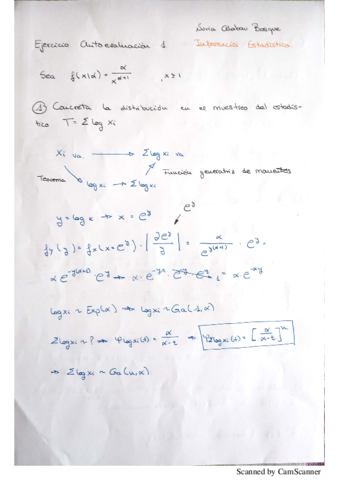 Ejercicio Autoevaluación 1 Inferencia Estadística
Sea f(x|α) = α / x^(α+1) , x ≥ 1
① Concreta la distribución en el muestreo del estadís-
tico T = Σ log xi
Xi va → Σ log xi va
Teorema log xi → Σ log xi Función generatriz de momentos
y = log x → x = e^y e^y
f_y(y) = f_x(x = e^y) · | ∂e^y / y | = α / e^(y(α+1)) · e^y .
log xi ~ Exp(α) → log xi ~ Ga(1, α)
Σ log xi ~ ? → φ log xi(t) = α / α-t → φ Σ log xi(t) = [ α / α-t ]^n
⇒ Σ log xi ~ Ga(n, α)
Scanned by CamScanner